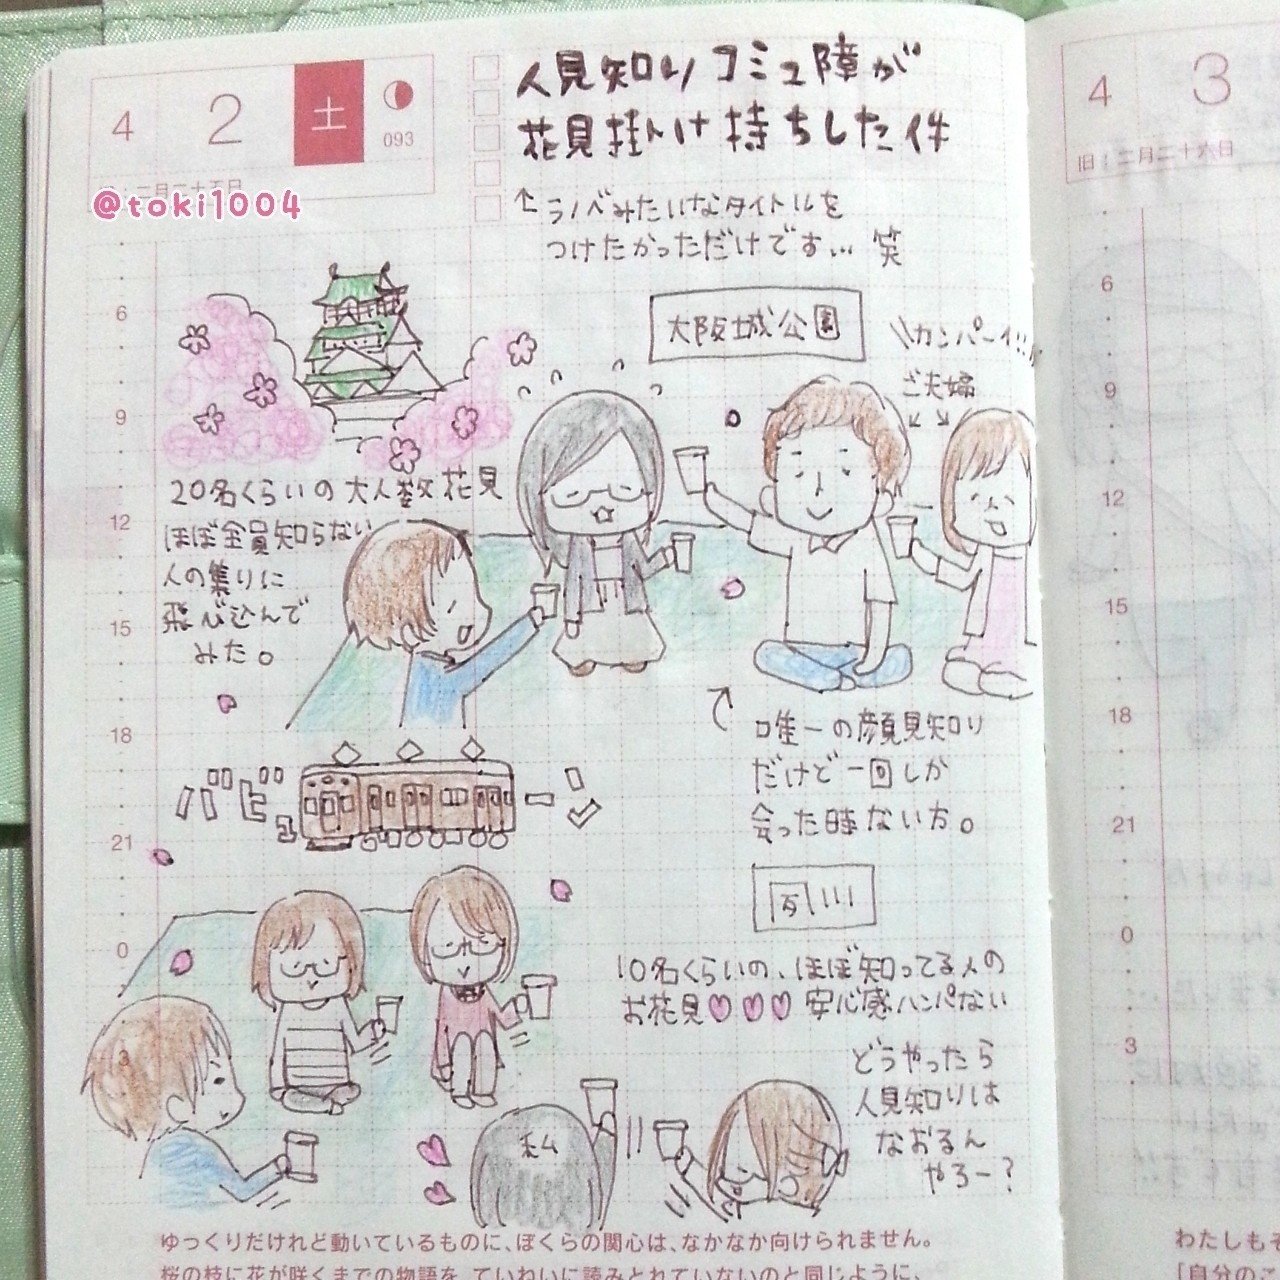 4 2 土
093
二月二十五日
@toki1004
人見知りコミュ障が
花見掛け持ちした件
↑ラノベみたいなタイトルを
つけたかっただけです… 笑
大阪城公園
\\カンパーイ!!
ご夫婦
20名くらいの大人数花見
ほぼ全員知らない
人の集りに
飛び込んで
みた。
唯一の顔見知り
だけど一回しか
会った時ない方。
バビューン
10名くらいの、ほぼ知ってる人の
お花見♡♡♡安心感ハンパない
どうやったら
人見知りは
なおるん
やろー?
私
6
9
12
15
18
21
0
3
ゆっくりだけれど動いているものに、ぼくらの関心は、なかなか向けられません。
桜の枝に花が咲くまでの物語を、ていねいに読みとれていないのと同じように、
4 3
旧:二月二十六日
6
9
12
15
18
21
0
3
わたしもそ
「自分のこ